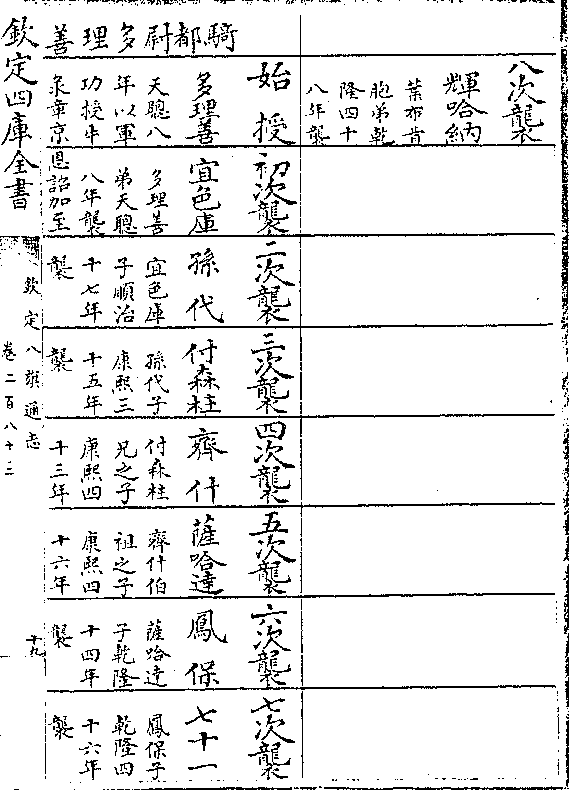 八次襲
輝哈納
葉布肯
胞弟乾
隆四十
八年襲
騎都尉多理善
始授
多理善
天聰八
年以軍
功授牛
彔章京
初次襲
宜色庫
多理善
弟天聰
八年襲
恩詔加至
二次襲
孫代
宜色庫
子順治
十七年
襲
三次襲
付森柱
孫代子
康熙三
十五年
襲
四次襲
齊什
付森柱
兄之子
康熙四
十三年
五次襲
薩哈達
齊什伯
祖之子
康熙四
十六年
六次襲
鳳保
薩哈達
子乾隆
十四年
襲
七次襲
七十一
鳳保子
乾隆四
十六年
襲
欽定四庫全書
欽定八旗通志
卷二百八十三
十九